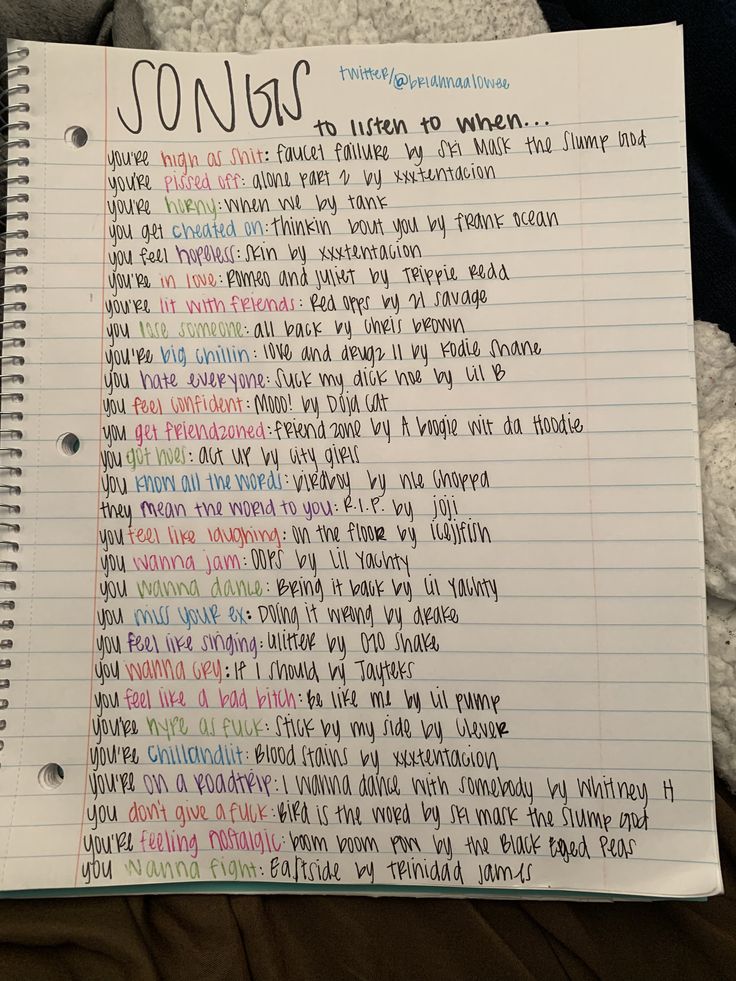 SONGS
twitter/@briannaalowee
to listen to when...
you're high as shit: faucet failure by Ski Mask the Slump God
you're pissed off: alone part 2 by xxxtentacion
you're horny: when we by tank
you get cheated on: thinkin bout you by frank ocean
you feel hopeless: skin by xxxtentacion
you're in love: Romeo and juliet by Trippie Redd
you're lit with friends: Red opps by 21 savage
you lose someone: all back by chris brown
you're big chillin: love and drugz II by Kodie Shane
you hate everyone: suck my dick hoe by Lil B
you feel confident: Mooo! by Doja cat
you get friendzoned: friend zone by A boogie wit da Hoodie
you got hoes: act up by city girls
you know all the words: birdboy by nle Choppa
they mean the world to you: R.I.P. by joji
you feel like laughing: on the floor by icejjfish
you wanna jam: OOPS by Lil Yachty
you wanna dance: Bring it back by Lil Yachty
you miss your ex: Doing it wrong by drake
you feel like singing: Glitter by 070 shake
you wanna cry: if I should by Jayteks
you feel like a bad bitch: Be like me by lil pump
you're hype as fuck: stick by my side by Clever
you're chillandlit: Blood stains by xxxtentacion
you're on a roadtrip: I wanna dance with somebody by Whitney H
you don't give a fuck: Bird is the word by ski mask the slump god
you're feeling nostalgic: boom boom pow by the Black Eyed Peas
you wanna fight: Eastside by Trinidad James